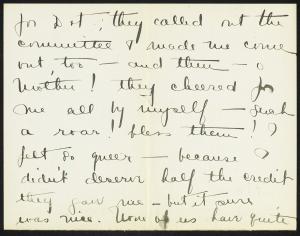 for Dot; they called out the
committee & made me come
out, too – and then – o
mother! they cheered for
me all by myself – such
a roar! bless them! I
felt so queer – because I
didn't deserve half the credit
they gave me – but it sure
was nice. None of us have quite